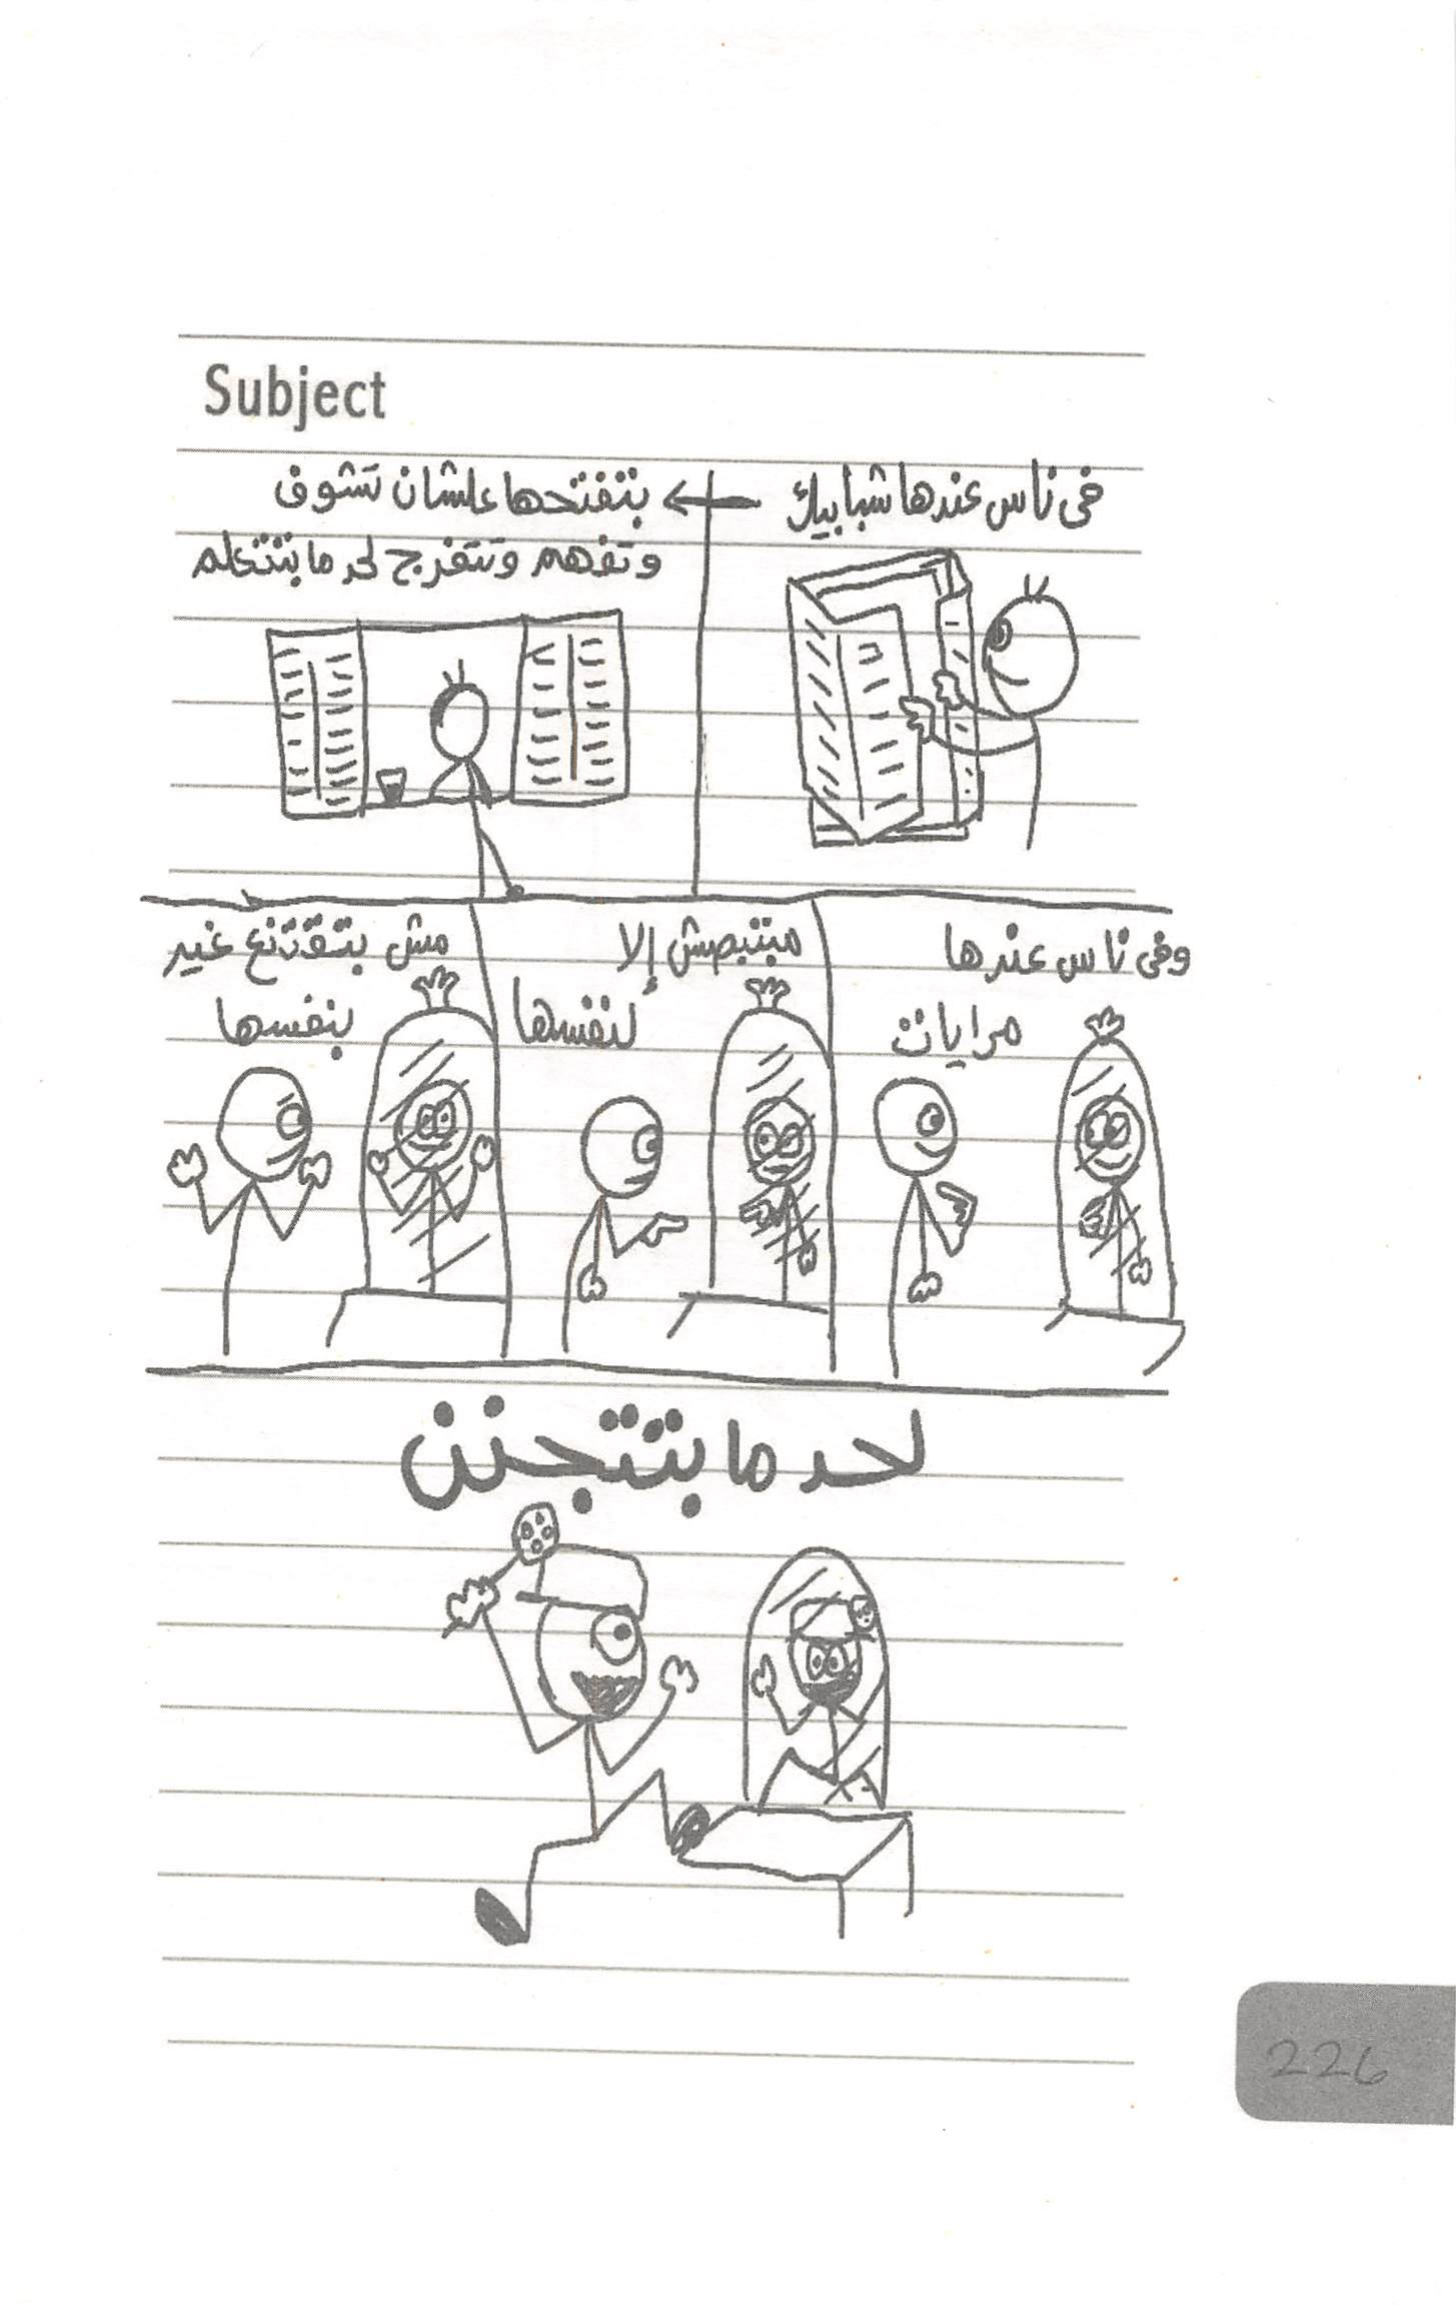 Subject
فى ناس عندها شبابيك
بتفتحها علشان تشوف
وتفهم وتتفرج لحد ما بتتعلم
وفى ناس عندها
مرايات
مبتبصش إلا
لنفسها
مش بتقتنع غير
بنفسها
لحد ما بتتجنن
226